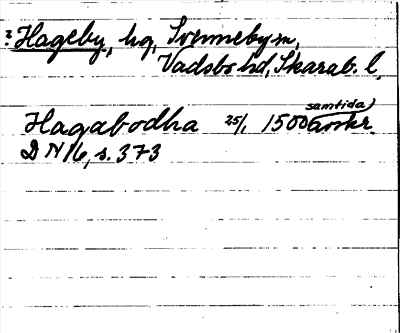 ? Hageby, hg, Svennebysn,
Vadsbo hd, Skarab. l.
samtida)
Hagabodha 25/1 1500 avskr.
DN 16, s. 373